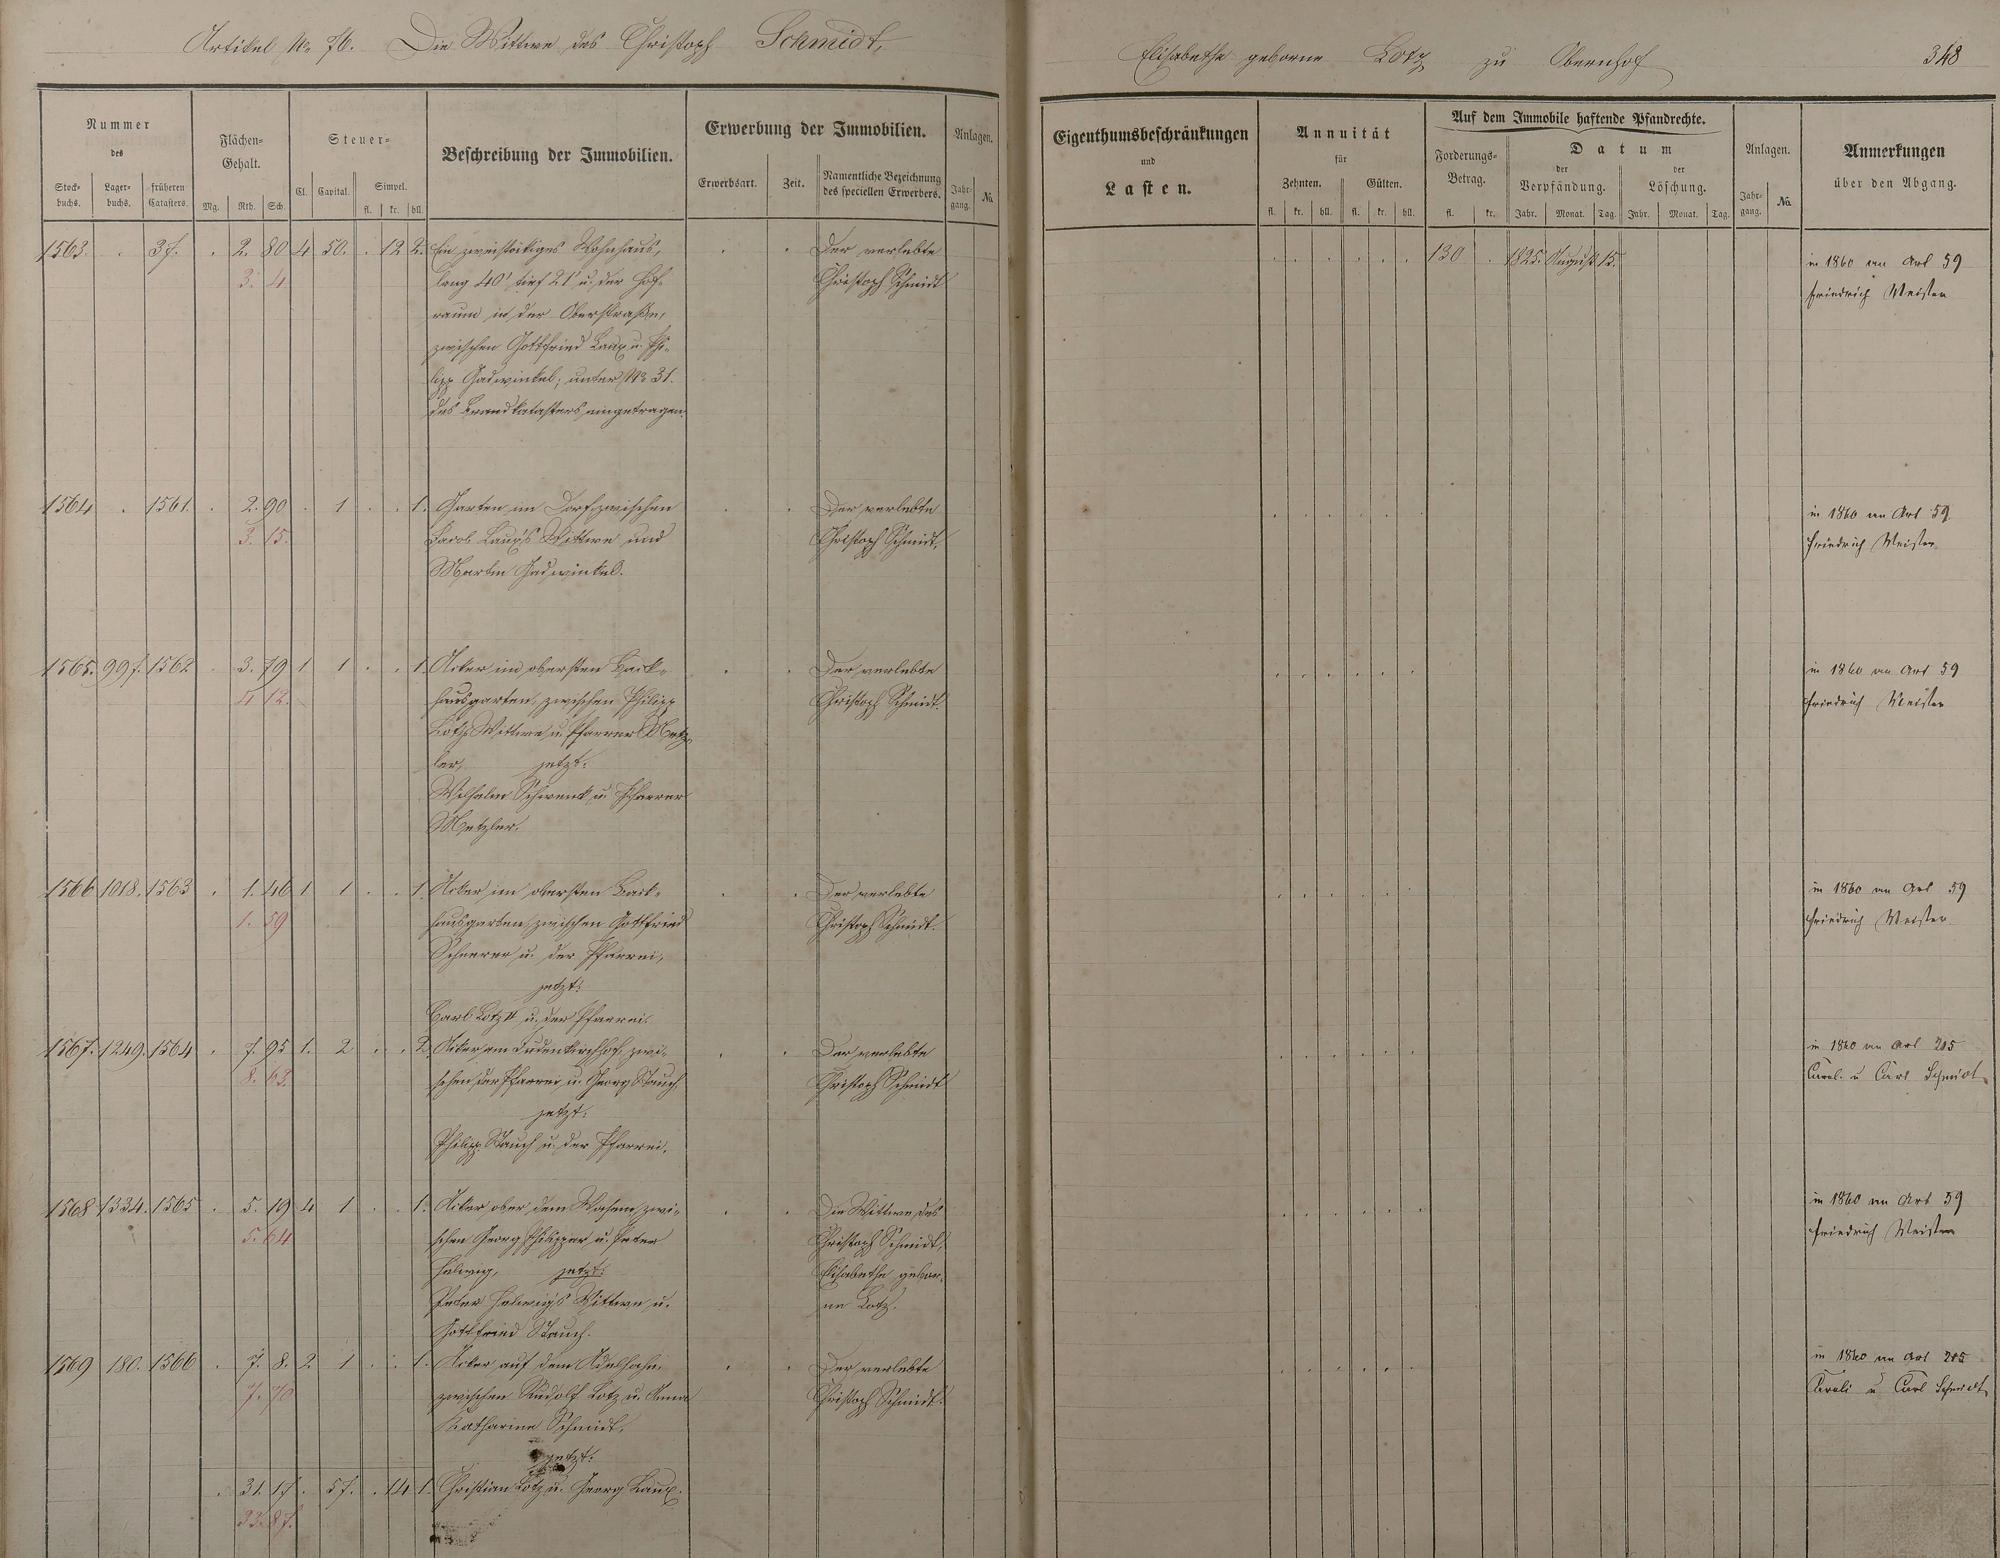 Artikel No 76. Die Wittwe des Christoph Schmidt, Elisabethe geborne Lotz zu Obernhof 348
Nummer des
Stockbuchs. Lagerbuchs. früheren Catasters.
Flächen-Gehalt.
Mg. Rth. Sch.
Steuer-
Cl. Capital. Simpel.
fl. kr. hll.
Beschreibung der Immobilien.
Erwerbung der Immobilien.
Erwerbsart. Zeit. Namentliche Bezeichnung des speciellen Erwerbers.
Anlagen.
Jahrgang. No.
Eigenthumsbeschränkungen
und
Lasten.
Annuität
für
Zehnten. Gülten.
fl. kr. hll. fl. kr. hll.
Auf dem Immobile haftende Pfandrechte.
Forderungs-Betrag.
fl. kr.
Datum
der Verpfändung. der Löschung.
Jahr. Monat. Tag. Jahr. Monat. Tag.
Anlagen.
Jahrgang. No.
Anmerkungen
über den Abgang.
1563. . 37. . 2. 80 4 50. . 12 2. Ein zweistöckiges Wohnhaus, . . Der verlebte 130 . 1825. August 15. in 1860 an Art 59
3. 4 lang 40' tief 21' u. der Hof- Christoph Schmidt Friedrich Meister
raum in der Oberstraße,
zwischen Gottfried Laux u. Phi-
lipp Gadwinkel; unter No 31.
des Brandkatasters eingetragen.
1564 . 1561. . 2. 90 . 1 . . 1. Garten im Dorf zwischen . . Der verlebte in 1860 an Art 59
3. 15. Jacob Laux's Wittwe und Christoph Schmidt. Friedrich Meister
Martin Gadwinkel.
1565. 997. 1562 . 3. 79 1 1 . . 1. Acker im obersten Back- . . Der verlebte in 1860 an Art 59
4 12. hausgarten, zwischen Philipp Christoph Schmidt. Friedrich Meister
Lotz Wittwe u. Pfarrer Metz-
ler, jetzt:
Wilhelm Schwenk u. Pfarrer
Metzler.
1566 1018. 1563 . 1. 46 1 1 . . 1. Acker im obersten Back- . . Der verlebte in 1860 an Art 59
1. 59 hausgarten, zwischen Gottfried Christoph Schmidt. Friedrich Meister
Scheerer u. der Pfarrei,
jetzt:
Carl Lotz II u. der Pfarrei.
1567. 1249. 1564 . 7. 95 1. 2 . . 2 Acker am Judenkirchhof, zwi- . . Der verlebte in 1860 an Art 205
8. 63. schen der Pfarrei u. Georg Stauch Christoph Schmidt u Carl Schmidt
jetzt:
Philipp Stauch u. der Pfarrei.
1568 1334. 1565 . 5. 19 4 1 . . 1. Acker ober dem Wasem, zwi- . . Die Wittwe des in 1860 an Art 59
5. 64 schen Georg Philippar u. Peter Christoph Schmidt, Friedrich Meister
Helwig, jetzt: Elisabethe gebor-
Peter Helwig's Wittwe u. ne Lotz.
Gottfried Stauch.
1569 180. 1566 . 7. 8. 2. 1 . . 1. Acker auf dem . . Der verlebte in 1860 an Art 205
7. 70 zwischen Rudolf Lotz u. Anna Christoph Schmidt. u Carl Schmidt
Katharine Schmidt,
jetzt:
. 31. 17. . 57. . 14 1. Christian Lotz u. Georg Laux.
33. 87.